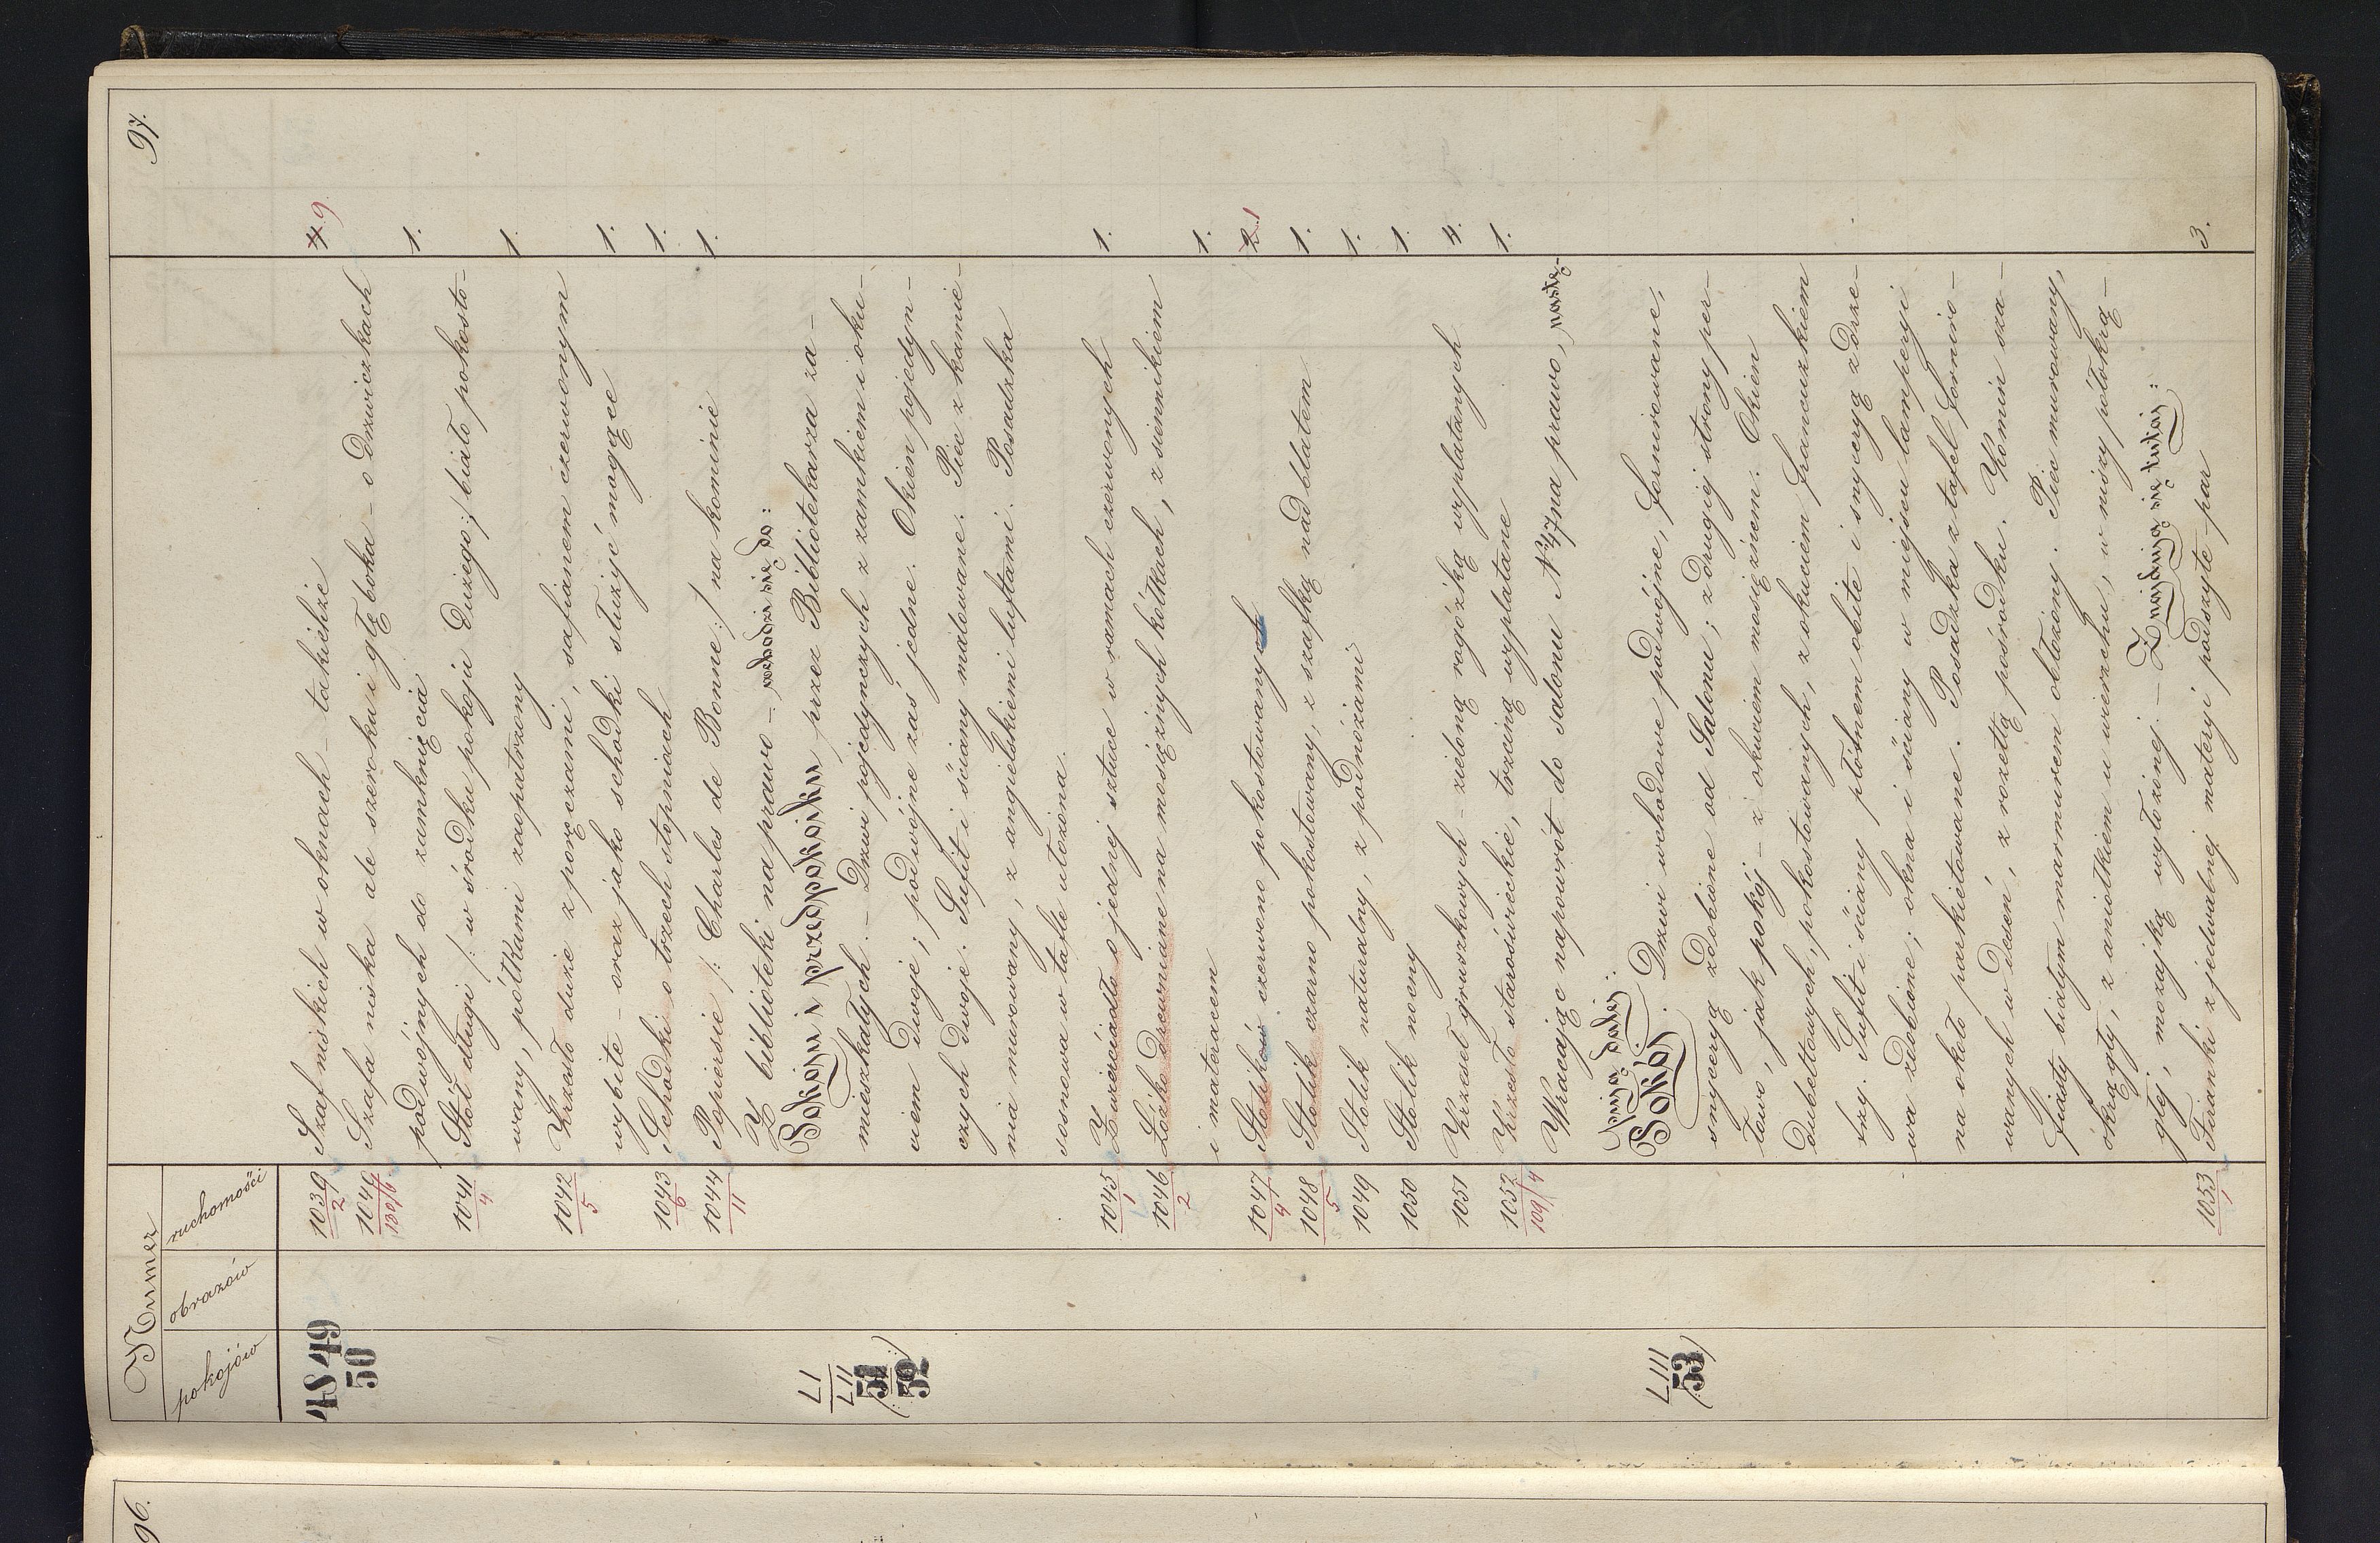 97.
Numer
pokojów obrazów ruchomości
48 49 1039 Szaf niskich w oknach – takichże 4 9
2
50 1040 Szafa niska ale szeroka i głęboka – o drzwiczkach
130/6 podwójnych do zamknięcia 1.
1041 Stół długi /: w środku pokoju dużego :/ biało pokosto-
4 wany, półkami zaopatrzony 1.
1042 Krzesło duże z poręczami, safianem czerwonym
5 wybite – oraz jako schodki służyć mogące 1.
1043 Schodki o trzech stopniach 1.
6
1044 Popiersie /: Charles de Bonne :/ na kominie 1.
11
Z biblioteki na prawo – wchodzi się do:
LI Pokoju i przedpokoiku przez Bibliotekarza za-
LII
51 mieszkałych. – Drzwi pojedynczych z zamkiem i oku-
52 ciem dwoje; podwójne zaś jedne. Okien pojedyn-
czych dwoje. Sufit i ściany malowane. Piec z kamie-
nia murowany, z angielskiemi luftami. Posadzka
sosnowa w tafle ułożona.
1045 Zwierciadło o jednej sztuce w ramach czerwonych 1.
1
1046 Łóżko drewniane na mosiężnych kółkach, z siennikiem
2 i materacem 1.
1047 Stolików czerwono pokostowanych 2. 1
4
1048 Stolik czarno pokostowany, z szafką nad blatem 1.
5
1049 Stolik naturalny, z podnóżami 1.
1050 Stolik nocny 1.
1051 Krzeseł gruszkowych – zieloną rogóżką wyplatanych 4.
1052 Krzesło staroświeckie, trzciną wyplatane 1.
109/4
Wracając napowrót do salonu N 47 na prawo, nastę-
pują dalej:
LIII Pokój. Drzwi wchodowe podwójne, fornirowane,
53 snyceryą zdobione od Salonu; z drugiej strony per-
łowo, jak pokój – z okuciem mosiężnem. Okien
dubeltowych, pokostowanych, z okuciem francuzkiem
trzy. Sufit i ściany płótnem obite i snyceryą z drze-
wa zdobione; okna i ściany w miejscu lamperyi
na około parkietowane. Posadzka z tafel forniro-
wanych w deseń, z rozetą pośrodku. Komin sza-
fiasty białym marmurem obłożony. Piec murowany,
okrągły, z aniołkiem u wierzchu, w niszy półokrą-
głej, mozajką wyłożonej. – Znajdują się tutaj:
1053 Firanki z jedwabnej materyi podszyte par 3.
1
96.